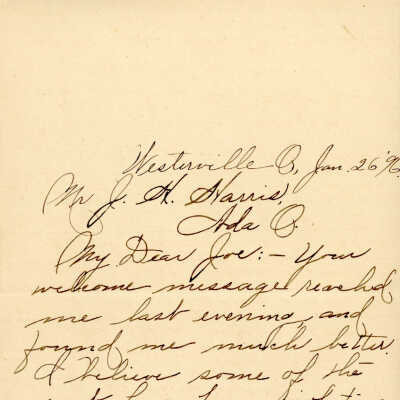 Westerville O, Jan. 26 '96
Mr J. H. Harris,
Ada O.
My Dear Joe:- Your
welcome message reached
me last evening, and
found me much better.
I believe some of the